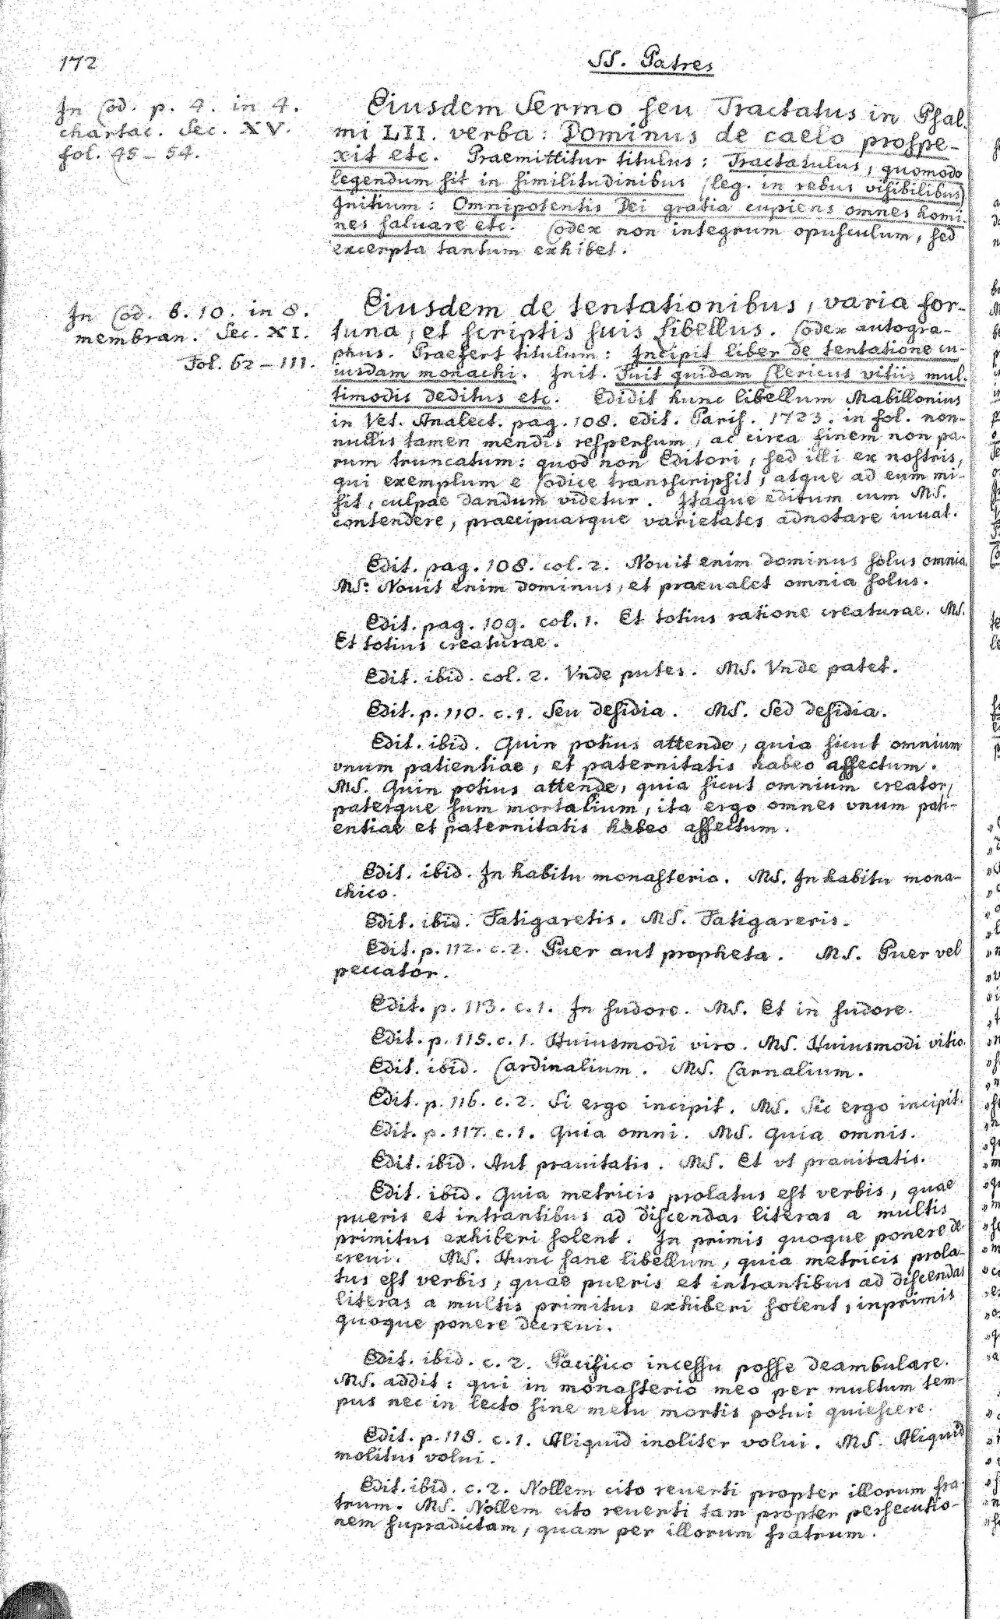 172
SS. Patres
In Cod. p. 4. in 4.
chartac. Sec. XV.
fol. 45 – 54.
Eiusdem Sermo seu Tractatus in Psal.
mi LII. verba: Dominus de caelo prospe-
xit etc. Praemittitur titulus: Tractatulus, quomodo
legendum sit in similitudinibus (leg. in rebus visibilibus)
Initium: Omnipotentis Dei gratia cupiens omnes homi-
nes saluare etc. Codex non integrum opusculum, sed
excerpta tantum exhibet.
In Cod. b. 10. in 8.
membran. Sec. XI.
Fol. 62 – 111.
Eiusdem de tentationibus, varia for-
tuna, et scriptis suis libellus. Codex autogra-
phus. Praefert titulum: Incipit liber de tentatione cu-
iusdam monachi. Init. Fuit quidam Clericus vitiis mul-
timodis deditus etc. Edidit hunc libellum Mabillonius
in Vet. Analect. pag. 108. edit. Paris. 1723. in fol. non-
nullis tamen mendis respersum, ac circa finem non pa-
rum truncatum: quod non Editori, sed illi ex nostris,
qui exemplum e Codice transscripsit, atque ad eum mi-
sit, culpae dandum videtur. Itaque editum cum MS.
contendere, praecipuasque varietates adnotare iuuat.
Edit. pag. 108. col. 2. Nouit enim dominus solus omnia
MS: Nouit enim dominus, et praeualet omnia solus.
Edit. pag. 109. col. 1. Et totius ratione creaturae. MS.
Et totius creaturae.
Edit. ibid. col. 2. Vnde putes. MS. Vnde patet.
Edit. p. 110. c. 1. Seu desidia. MS. Sed desidia.
Edit. ibid. Quin potius attende, quia sicut omnium
vnum patientiae, et paternitatis habeo affectum.
MS. Quin potius attende, quia sicut omnium creator,
paterque sum mortalium, ita ergo omnes vnum pati-
entiae et paternitatis habeo affectum.
Edit. ibid. In habitu monasterio. MS. In habitu mona-
chico.
Edit. ibid. Fatigaretis. MS. Fatigareris.
Edit. p. 112. c. 2. Puer aut propheta. MS. Puer vel
peccator.
Edit. p. 113. c. 1. In sudore. MS. Et in sudore.
Edit. p. 115. c. 1. Huiusmodi viro. MS. Huiusmodi vitio.
Edit. ibid. Cardinalium. MS. Carnalium.
Edit. p. 116. c. 2. Si ergo incipit. MS. Sic ergo incipit.
Edit. p. 117. c. 1. Quia omni. MS. Quia omnis.
Edit. ibid. Aut prauitatis. MS. Et vt prauitatis.
Edit. ibid. Quia metricis prolatus est verbis, quae
pueris et intrantibus ad discendas literas a multis
primitus exhiberi solent. In primis quoque ponere de-
creui. MS. Hunc sane libellum, quia metricis prola-
tus est verbis, quae pueris et intrantibus ad discendas
literas a multis primitus exhiberi solent, inprimis
quoque ponere decreui.
Edit. ibid. c. 2. Pacifico incessu posse deambulare.
MS. addit: qui in monasterio meo per multum tem-
pus nec in lecto sine metu mortis potui quiescere.
Edit. p. 118. c. 1. Aliquid inoliter volui. MS. Aliquid
molitus volui.
Edit. ibid. c. 2. Nollem cito reuerti propter illorum fra-
trum. MS. Nollem cito reuerti tam propter persecutio-
nem supradictam, quam per illorum fratrum.